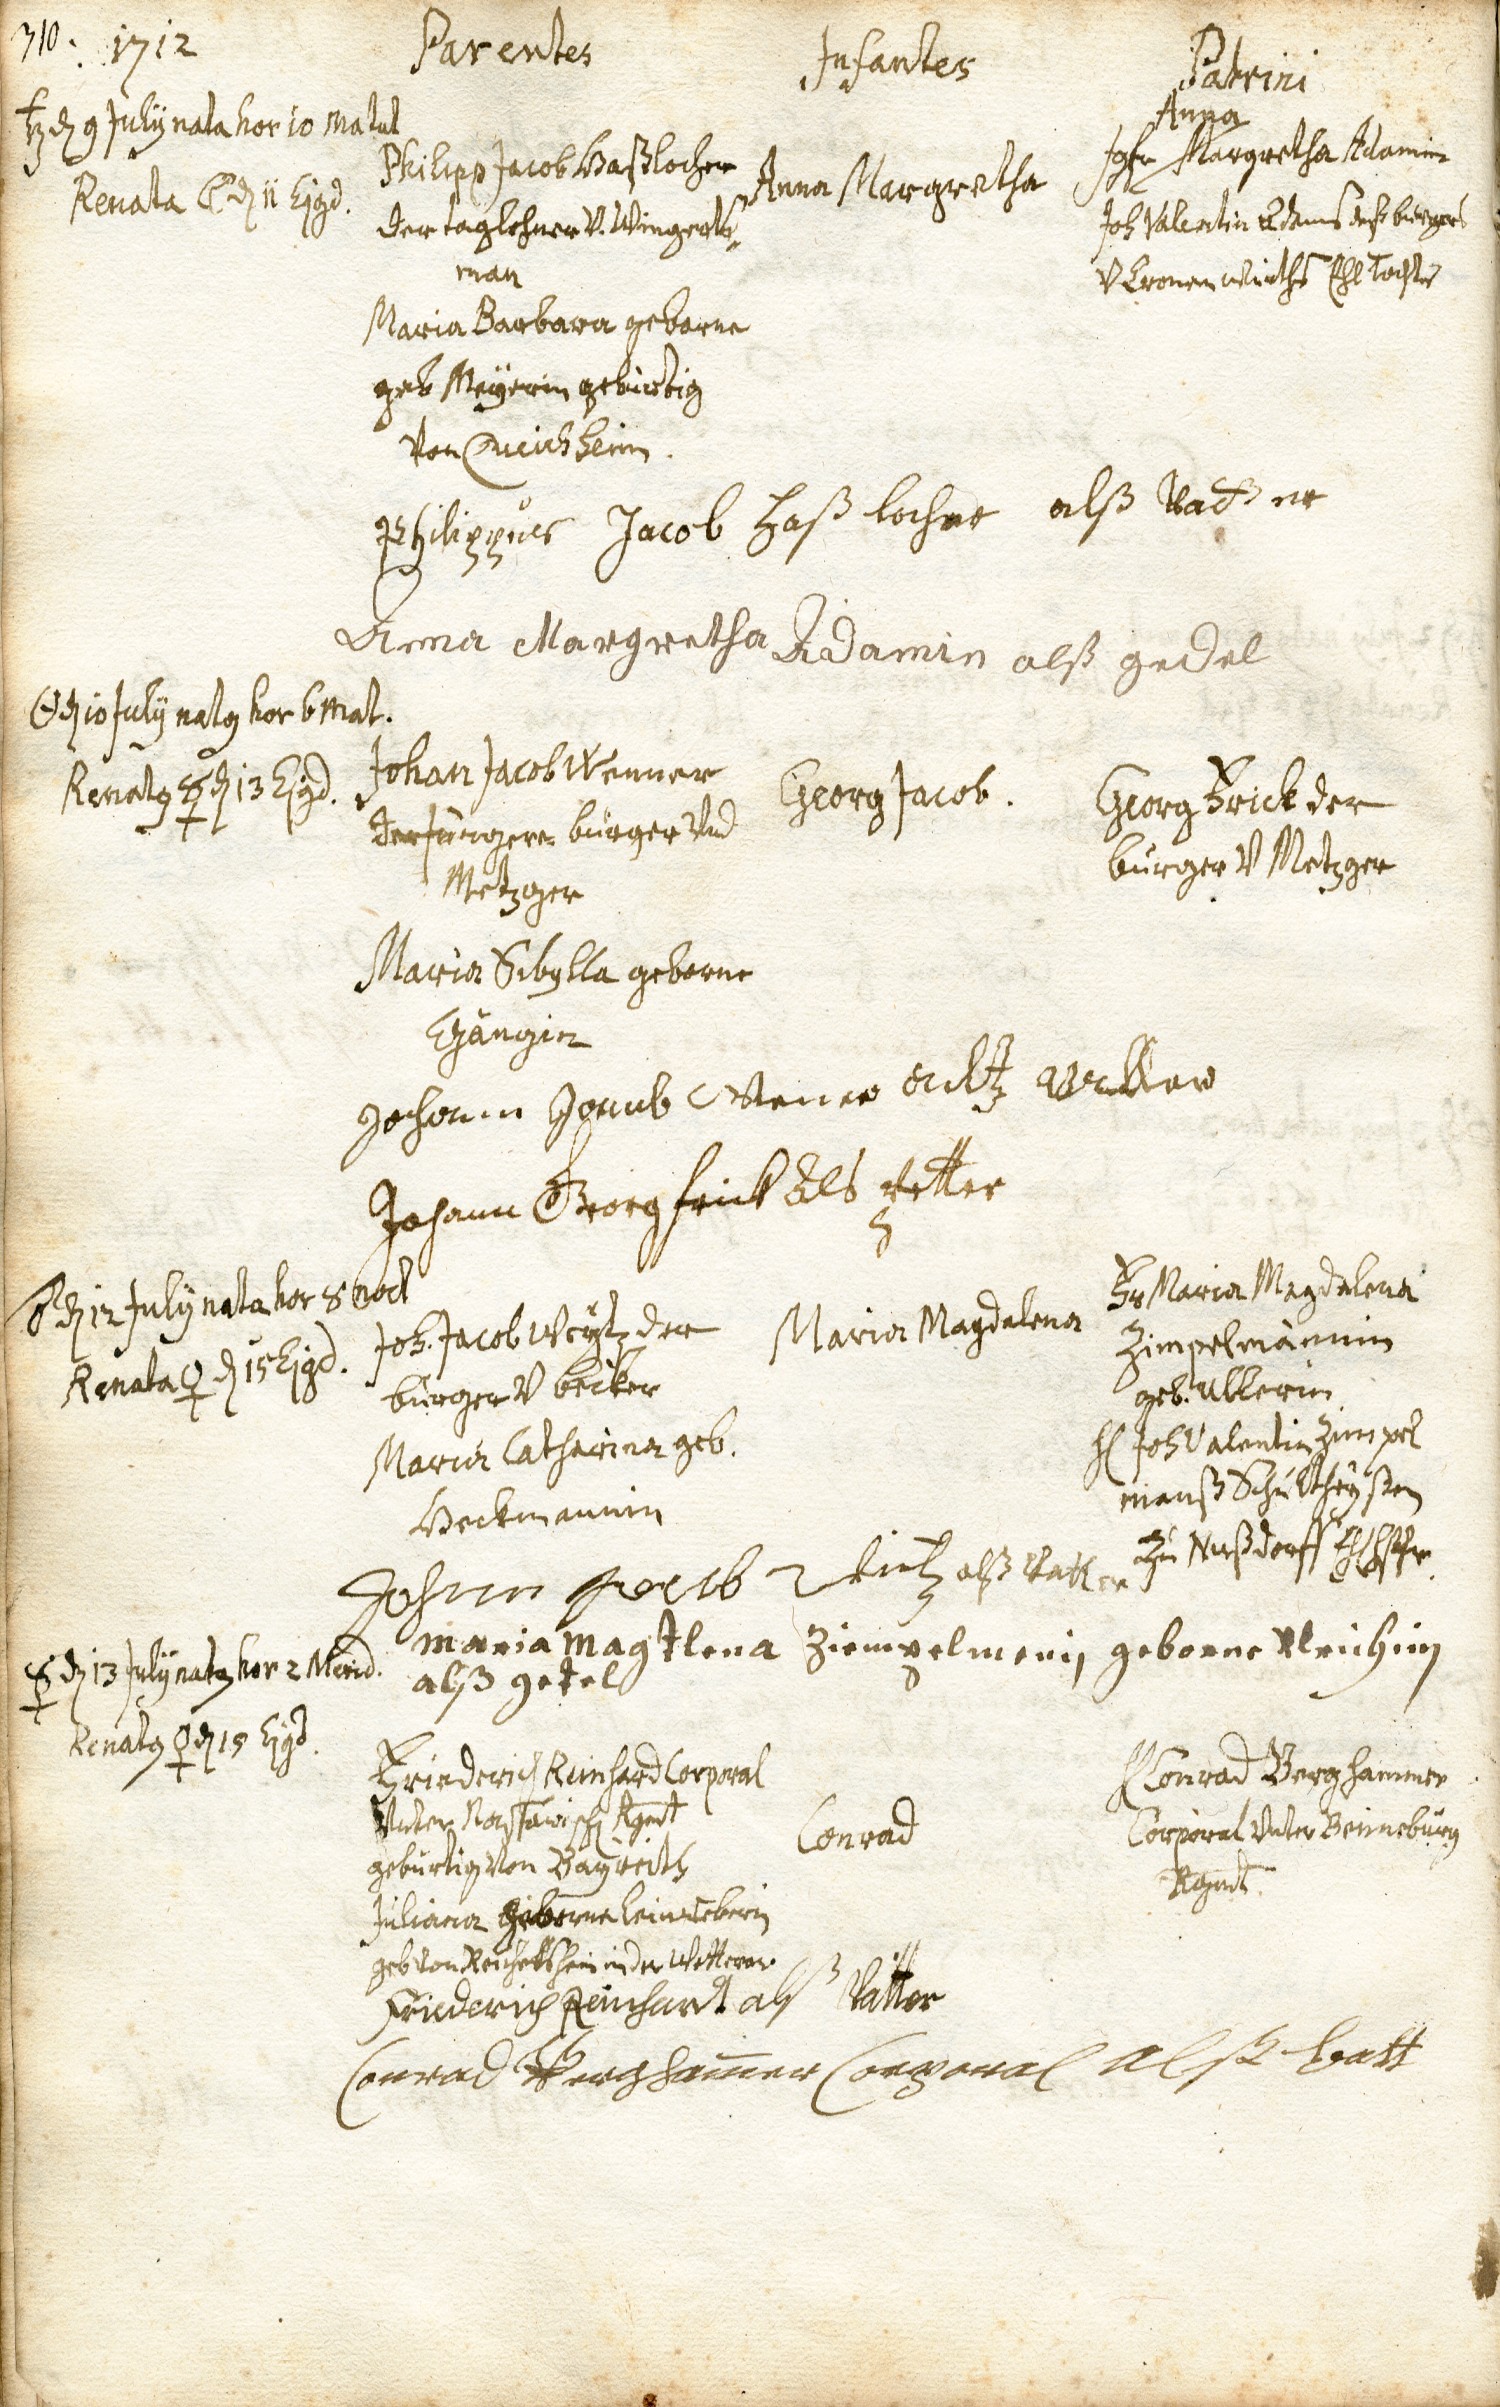 310. 1712
Parentes
Infantes
Patrini
♄ d 9 Julÿ nata hor 10 matut
Renata ☾ d 11 Ejgd.
Philipp Jacob Haßlocher
der taglehner V. Wingerts
man
Maria Barbara geborne
geb Meÿerin gebürtig
von Queichheim.
Anna Margretha
Anna
Jgfr Margretha Adamin
Joh Valentin Adams deß burgers
V Cronenwirths Ehl Tochter
Philippus Jacob Haß locher alß Vatter
Anna Margretha Adamin alß gedel
☉ d 10 Julÿ natq hor 6 mat.
Renatq ☿ d 13 Ejgd.
Johan Jacob Wenner
der jüngere burger Vnd
Metzger
Maria Sibylla geborne
Gängin
Georg Jacob.
Georg Frick der
burger V Metzger
Johann Jacob Wener alß Vatter
Johann Georg frick Als petter
♂ d 12 Julÿ nata hor 8 noct
Renata ♀ d 15 Ejgd.
Joh. Jacob Weÿtz der
burger V becker
Maria Catharina geb.
Heckmannin
Maria Magdalena
Fr Maria Magdalena
Zimpelmännin
geb. Ullerin
H Joh Valentin Zimpel
manß Schultheÿßen
Zu Nußdorff
Johann Jacob alß Vatter
maria magtlena Ziempelmenin geborne Ulrichin
alß getel
☿ d 13 Julÿ natq hor 2 Merid.
Renatq ♀ d 15 Ejgd.
Friederich Reinhard Corporal
Vnter Rgmt
gebürtig von Baÿreith
Juliana geborne Leinweberin
geb von Reichelsheim in der Wetterau
Conrad
H Conrad Berghammer
Corporal Vnter Beinneburg
Rgmt.
Friederich Reinhardt alß Vatter
Conrad Berghamer Corporal Alß batt